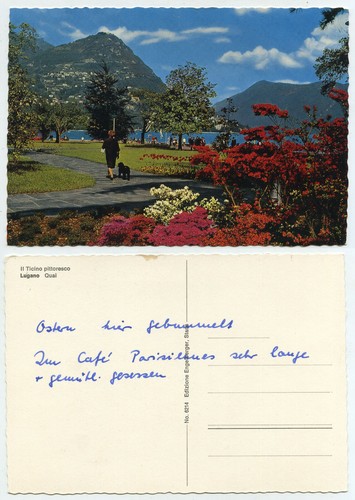 Il Ticino pittoresco
Lugano Quai
Ostern hier gebummelt
Im Café Parisiennes sehr lange
+ gemütl. gesessen
No. 6214 Edizione Engelberger,